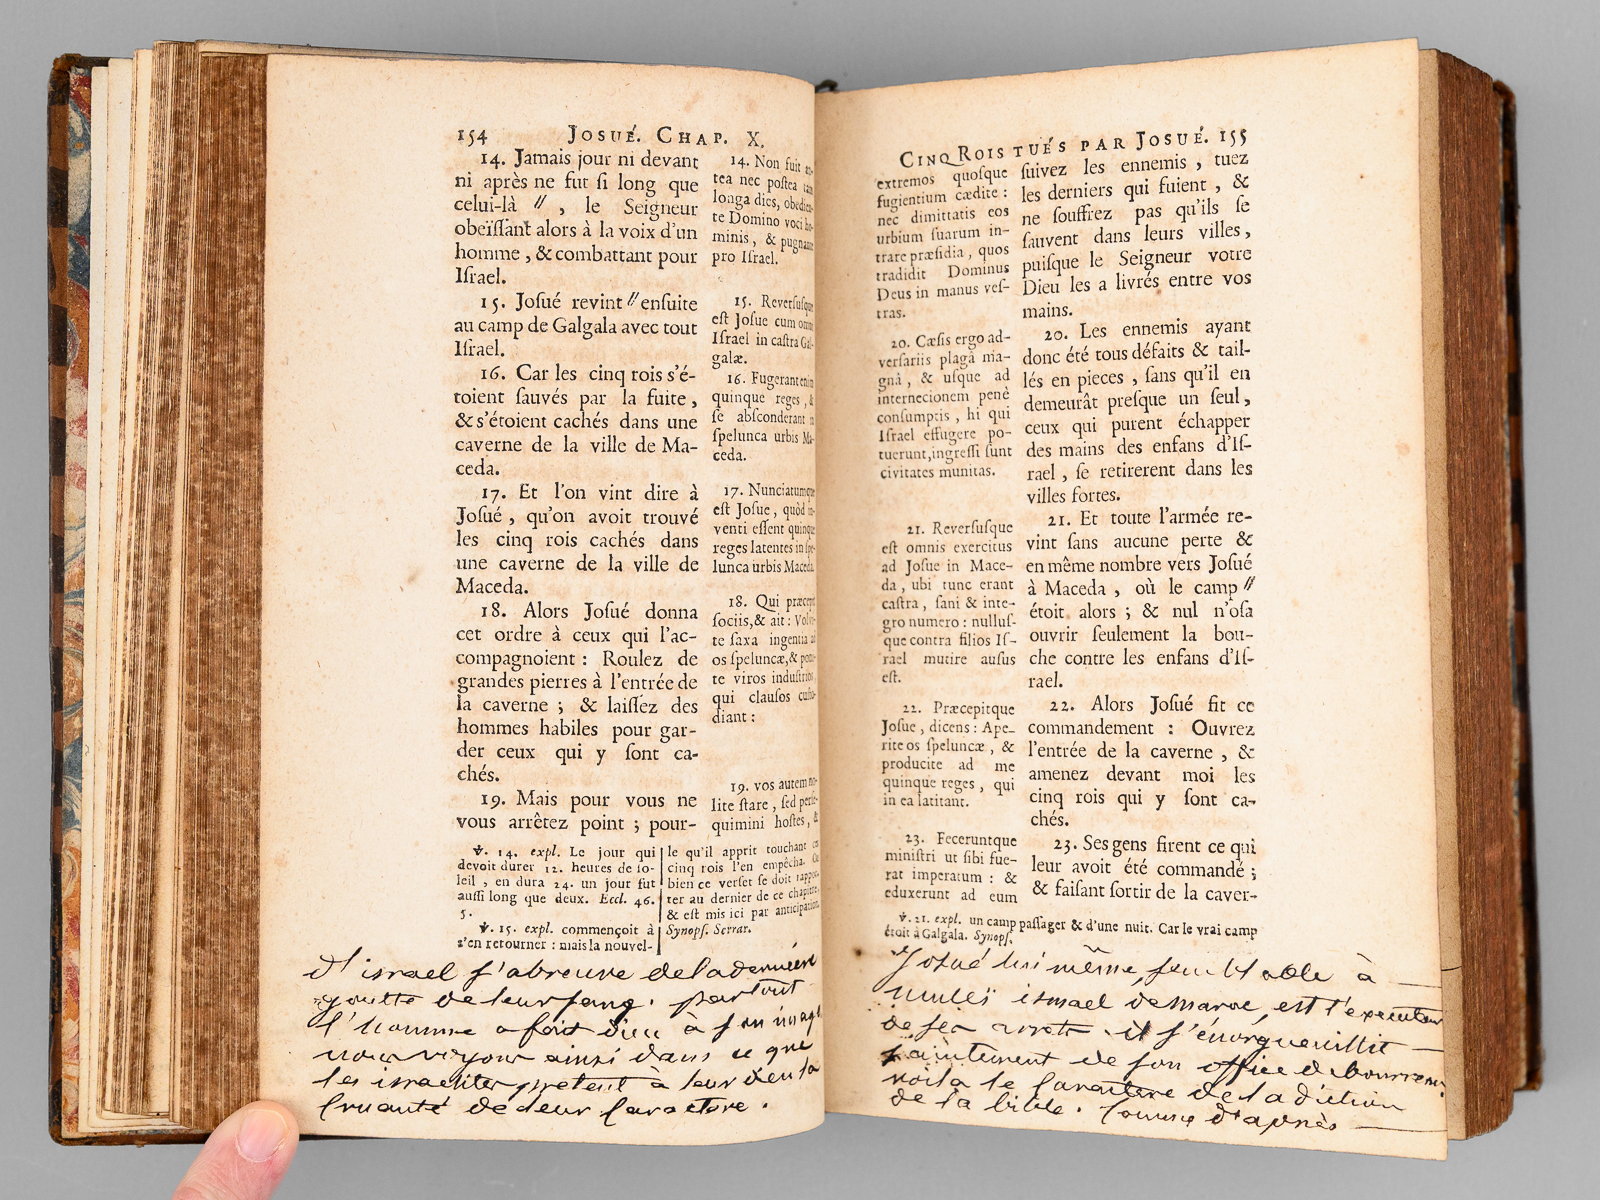 154 JOSUÉ. CHAP. X.
14. Jamais jour ni devant
ni après ne fut ſi long que
celui-là // , le Seigneur
obeïſſant alors à la voix d'un
homme , & combattant pour
Iſrael.
15. Joſué revint // enſuite
au camp de Galgala avec tout
Iſrael.
16. Car les cinq rois s'é-
toient ſauvés par la fuite ,
& s'étoient cachés dans une
caverne de la ville de Ma-
ceda.
17. Et l'on vint dire à
Joſué , qu'on avoit trouvé
les cinq rois cachés dans
une caverne de la ville de
Maceda.
18. Alors Joſué donna
cet ordre à ceux qui l'ac-
compagnoient : Roulez de
grandes pierres à l'entrée de
la caverne ; & laiſſez des
hommes habiles pour gar-
der ceux qui y ſont ca-
chés.
19. Mais pour vous ne
vous arrêtez point ; pour-
14. Non fuit an-
tea nec poſtea tam
longa dies, obedien-
te Domino voci ho-
minis, & pugnante
pro Iſrael.
15. Reverſuſque
eſt Joſue cum omni
Iſrael in caſtra Gal-
galæ.
16. Fugerant enim
quinque reges, &
ſe abſconderant in
ſpelunca urbis Ma-
ceda.
17. Nunciatumque
eſt Joſue, quòd in-
venti eſſent quinque
reges latentes in ſpe-
lunca urbis Maceda.
18. Qui præcepit
ſociis, & ait : Volvi-
te ſaxa ingentia ad
os ſpeluncæ, & poni-
te viros induſtrios,
qui clauſos cuſto-
diant :
19. vos autem no-
lite ſtare , ſed perſe-
quimini hoſtes, &
℣. 14. expl. Le jour qui
devoit durer 12. heures de ſo-
leil , en dura 24. un jour fut
auſſi long que deux. Eccl. 46.
5.
℣. 15. expl. commençoit à
s'en retourner : mais la nouvel-
le qu'il apprit touchant ces
cinq rois l'en empêcha. Ou
bien ce verſet ſe doit rappor-
ter au dernier de ce chapitre,
& eſt mis ici par anticipation.
Synopſ. Serrar.
d'israel s'abreuve de la derniére
goutte de leur sang. partout
l'homme a fait dieu à son image
nous voyons ainsi dans ce que
les israelites pretent à leur dieu la
cruauté de leur caractere.
CINQ ROIS TUÉS PAR JOSUÉ. 155
extremos quoſque
fugientium cædite :
nec dimittatis eos
urbium ſuarum in-
trare præſidia , quos
tradidit Dominus
Deus in manus veſ-
tras.
20. Cæſis ergo ad-
verſariis plagâ ma-
gnâ , & uſque ad
internecionem penè
conſumptis , hi qui
Iſrael effugere po-
tuerunt, ingreſſi ſunt
civitates munitas.
21. Reverſuſque
eſt omnis exercitus
ad Joſue in Mace-
da , ubi tunc erant
caſtra , ſani & inte-
gro numero : nulluſ-
que contra filios Iſ-
rael mutire auſus
eſt.
22. Præcepitque
Joſue , dicens : Ape-
rite os ſpeluncæ , &
producite ad me
quinque reges , qui
in ea latitant.
23. Feceruntque
miniſtri ut ſibi fue-
rat imperatum : &
eduxerunt ad eum
ſuivez les ennemis , tuez
les derniers qui fuient , &
ne ſouffrez pas qu'ils ſe
ſauvent dans leurs villes ,
puiſque le Seigneur votre
Dieu les a livrés entre vos
mains.
20. Les ennemis ayant
donc été tous défaits & tail-
lés en pieces , ſans qu'il en
demeurât preſque un ſeul ,
ceux qui purent échapper
des mains des enfans d'Iſ-
rael , ſe retirerent dans les
villes fortes.
21. Et toute l'armée re-
vint ſans aucune perte &
en même nombre vers Joſué
à Maceda , où le camp //
étoit alors ; & nul n'oſa
ouvrir ſeulement la bou-
che contre les enfans d'Iſ-
rael.
22. Alors Joſué fit ce
commandement : Ouvrez
l'entrée de la caverne , &
amenez devant moi les
cinq rois qui y ſont ca-
chés.
23. Ses gens firent ce qui
leur avoit été commandé ;
& faiſant ſortir de la caver-
℣. 21. expl. un camp paſſager & d'une nuit. Car le vrai camp
étoit à Galgala. Synopſ.
Josué lui même, semblable à
muleï ismael de maroc, est l'executeur
de ses arrets. il s'énorgueillit
saintement de son office de bourreau.
voila le caractere de la diction
de la bible. comme d'après